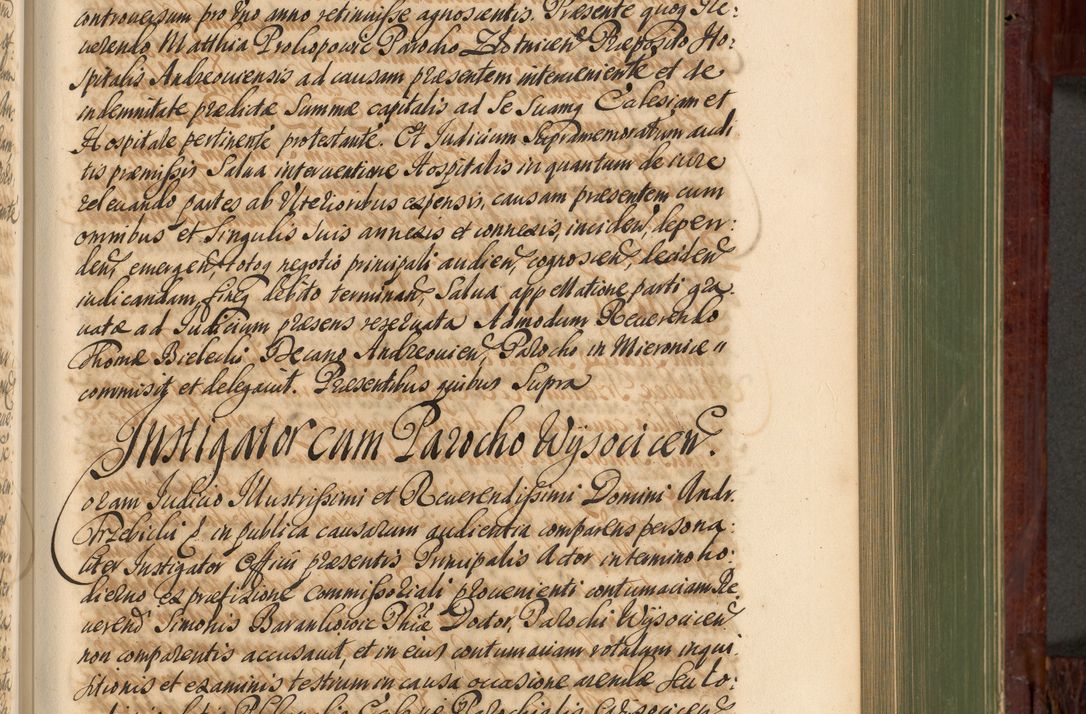 controversam pro uno anno retinuisse agnoscentis. Præsente quoq Re:
verendo Matthia Prokopowic Parocho Zlotnicen Præposito Ho:
spitalis Andreoviensis ad causam præsentem interveniente et de
indemnitate prædictæ Summæ capitalis ad Se Suamq Ecclesiam et
Hospitale pertinente protestante. Et Judicium Supramemoratum audi
tis præmissis Salva interventione Hospitalis in quantum de iure
relevando partes ab Ulterioribus expensis, causam præsentem cum
omnibus et Singulis Suis annexis et connexis, inciden, depen:
den, emergen totoq negotio principali audien, cognoscen, deciden
iudicandam, fineq debito terminan, Salva appellatione parti gra:
vatæ ad Judicium præsens reservata Admodum Reverendo
Thomæ Bielecki Decano Andreovien, Parocho in Mieronice
commisit et delegavit. Præsentibus quibus Supra
Instigator cum Parocho Wysocicen.
Coram Judicio Illustrissimi et Reverendissimi Domini Andr.
Trzebicki in publica causarum audientia comparens persona:
liter Instigator Officii præsentis Principalis Actor in termino ho:
dierno ex præfixione Commissoriali provenienti contumaciam Re
verend Simonis Barankowic Phiæ Doctor, Parochi Wysocicen
non comparentis accusavit, et in eius contumaciam rotulum inqui
sitionis et examinis testium in causa occasione arendæ Seu lo: